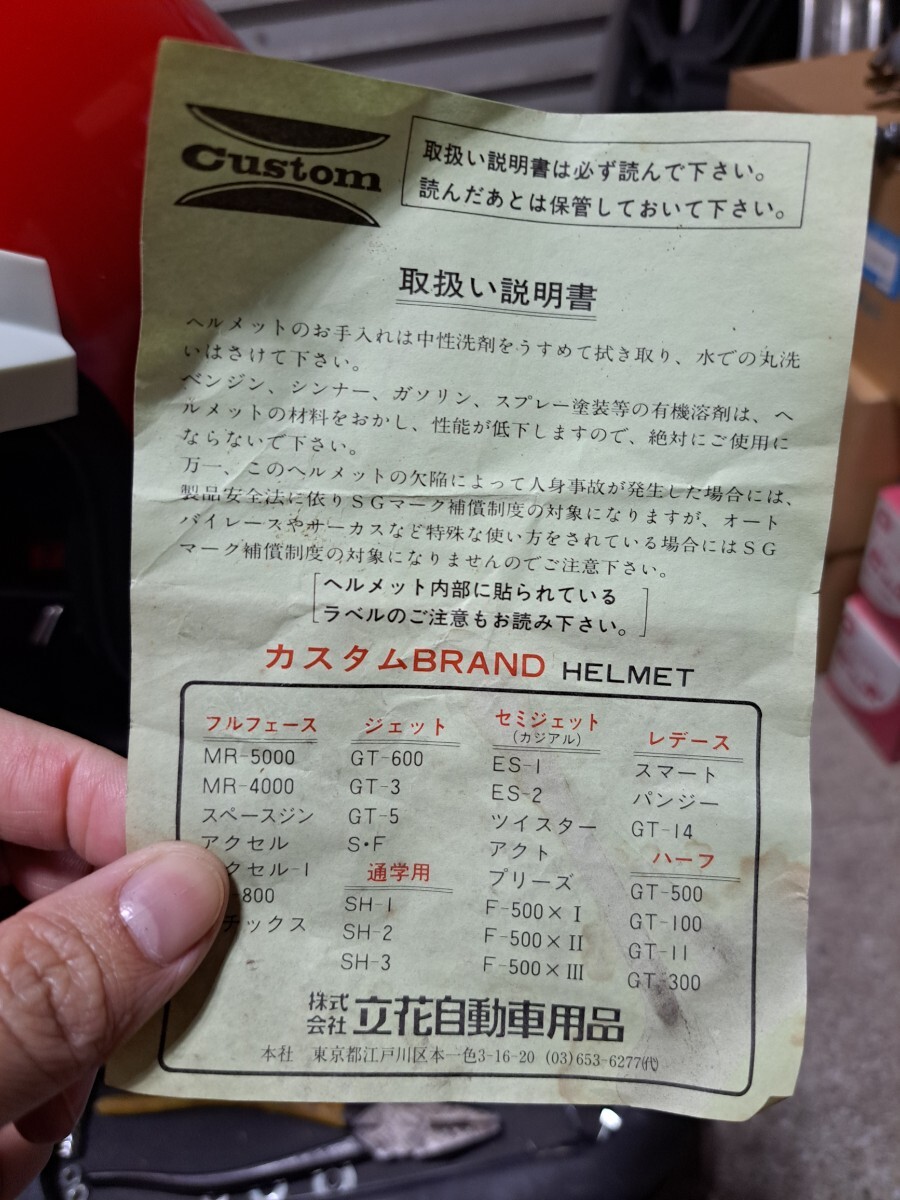 Custom
取扱い説明書は必ず読んで下さい。
読んだあとは保管しておいて下さい。
取扱い説明書
ヘルメットのお手入れは中性洗剤をうすめて拭き取り、水での丸洗
いはさけて下さい。
ベンジン、シンナー、ガソリン、スプレー塗装等の有機溶剤は、ヘ
ルメットの材料をおかし、性能が低下しますので、絶対にご使用に
ならないで下さい。
万一、このヘルメットの欠陥によって人身事故が発生した場合には、
製品安全法に依りSGマーク補償制度の対象になりますが、オート
バイレースやサーカスなど特殊な使い方をされている場合にはSG
マーク補償制度の対象になりませんのでご注意下さい。
ヘルメット内部に貼られている
ラベルのご注意もお読み下さい。
カスタムBRAND HELMET
フルフェース
MR-5000
MR-4000
スペースジン
アクセル
クセル-1
800
チックス
ジェット
GT-600
GT-3
GT-5
S・F
通学用
SH-1
SH-2
SH-3
セミジェット
(カジアル)
ES-1
ES-2
ツイスター
アクト
プリーズ
F-500×I
F-500×II
F-500×III
レデース
スマート
パンジー
GT-14
ハーフ
GT-500
GT-100
GT-11
GT-300
株式会社 立花自動車用品
本社 東京都江戸川区本一色3-16-20 (03)653-6277(代)